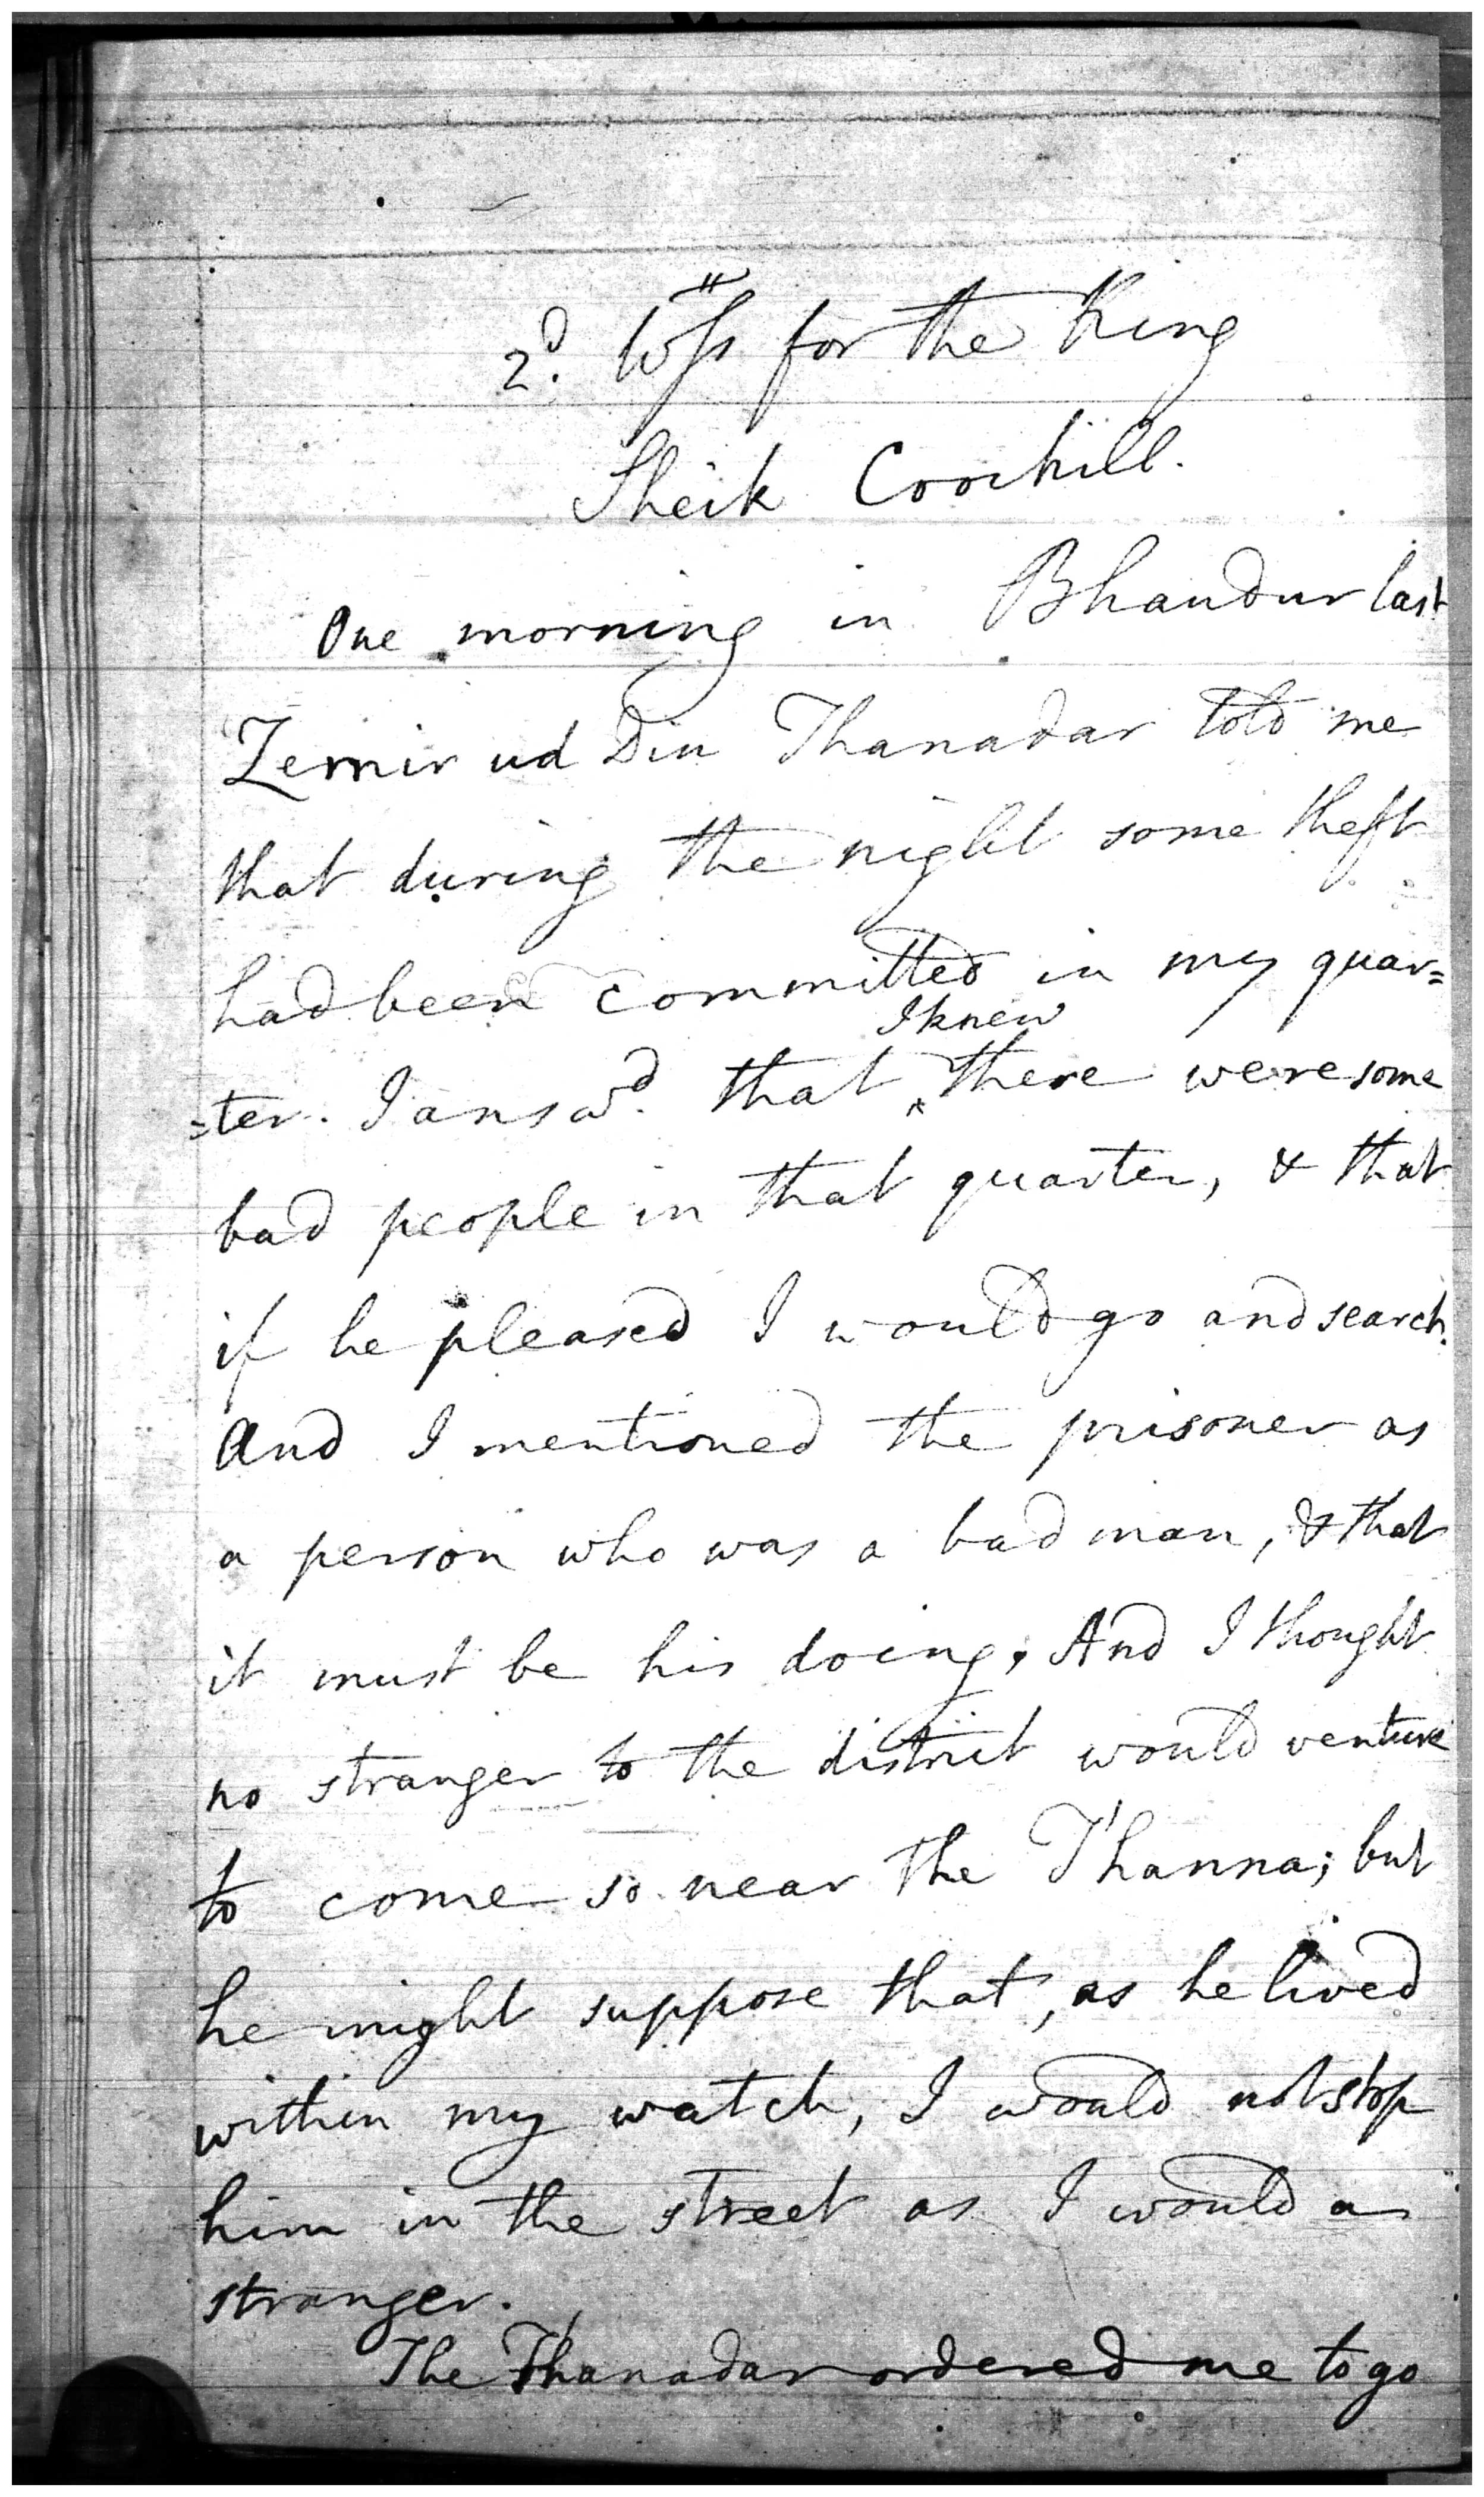 2d. Wss for the King
Sheik Coochill.
One morning in Bhaudur last
Zemir ud Din Thanadar told me
that during the night some theft
had been committed in my quar=
=ter. I answd. that ^I knew there were some
bad people in that quarter, & that
if he pleased I would go and search.
And I mentioned the prisoner as
a person who was a bad man, & that
it must be his doing. And I thought
no stranger to the district would venture
to come so near the T'hanna; but
he might suppose that, as he lived
within my watch, I would not stop
him in the street as I would a
stranger.
The T'hanadar ordered me to go